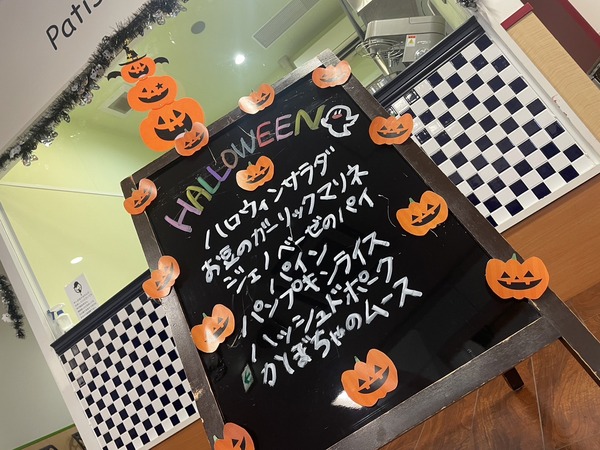 Patis
HALLOWEEN
ハロウィンサラダ
お豆のガーリックマリネ
ジェノベーゼのパイ
パイン
パンプキンライス
ハッシュドポーク
かぼちゃのムース